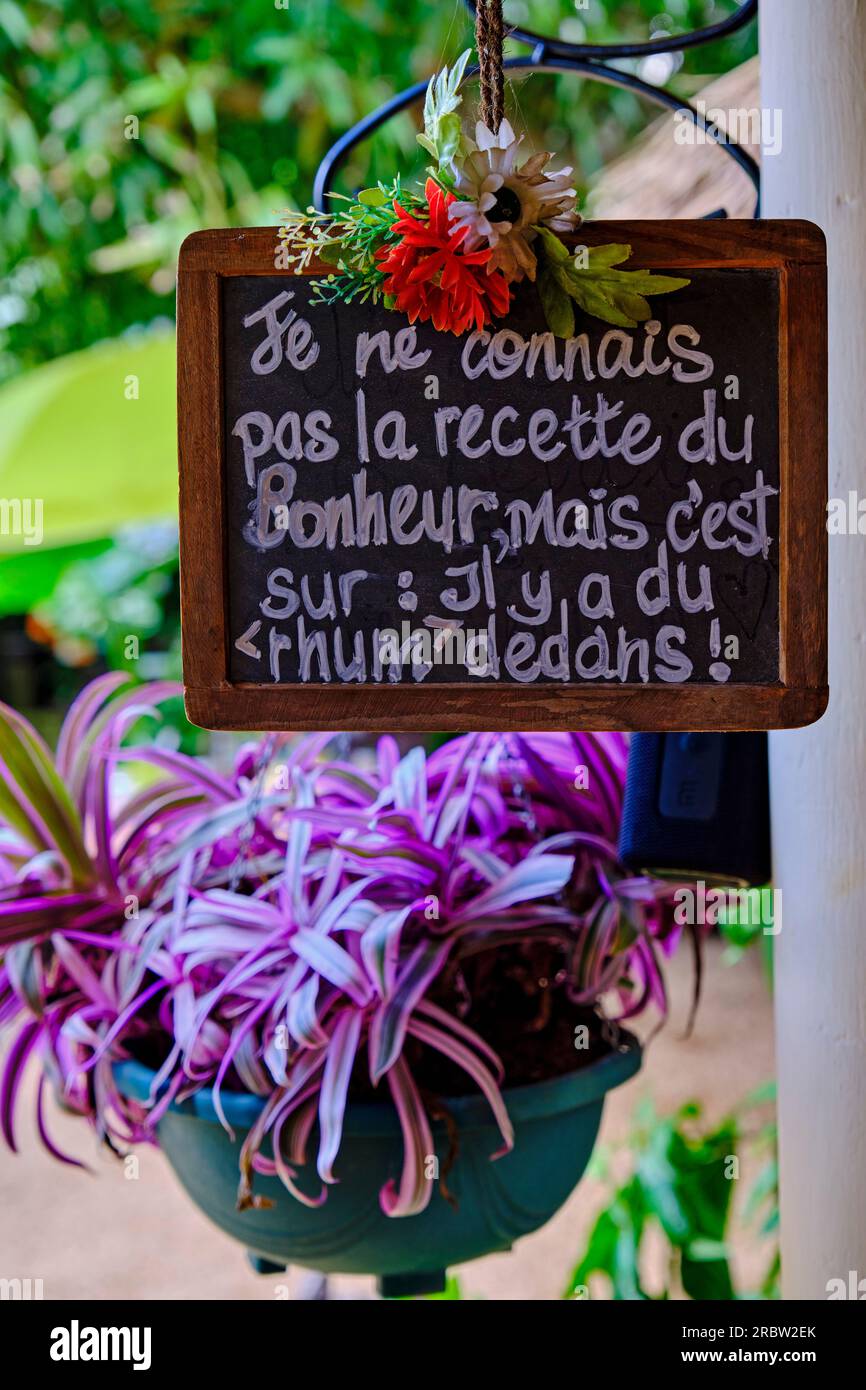 Je ne connais
pas la recette du
Bonheur, mais c'est
sur : Il y a du
<rhum> dedans !
alamy
Image ID: 2RBW2EK
www.alamy.com